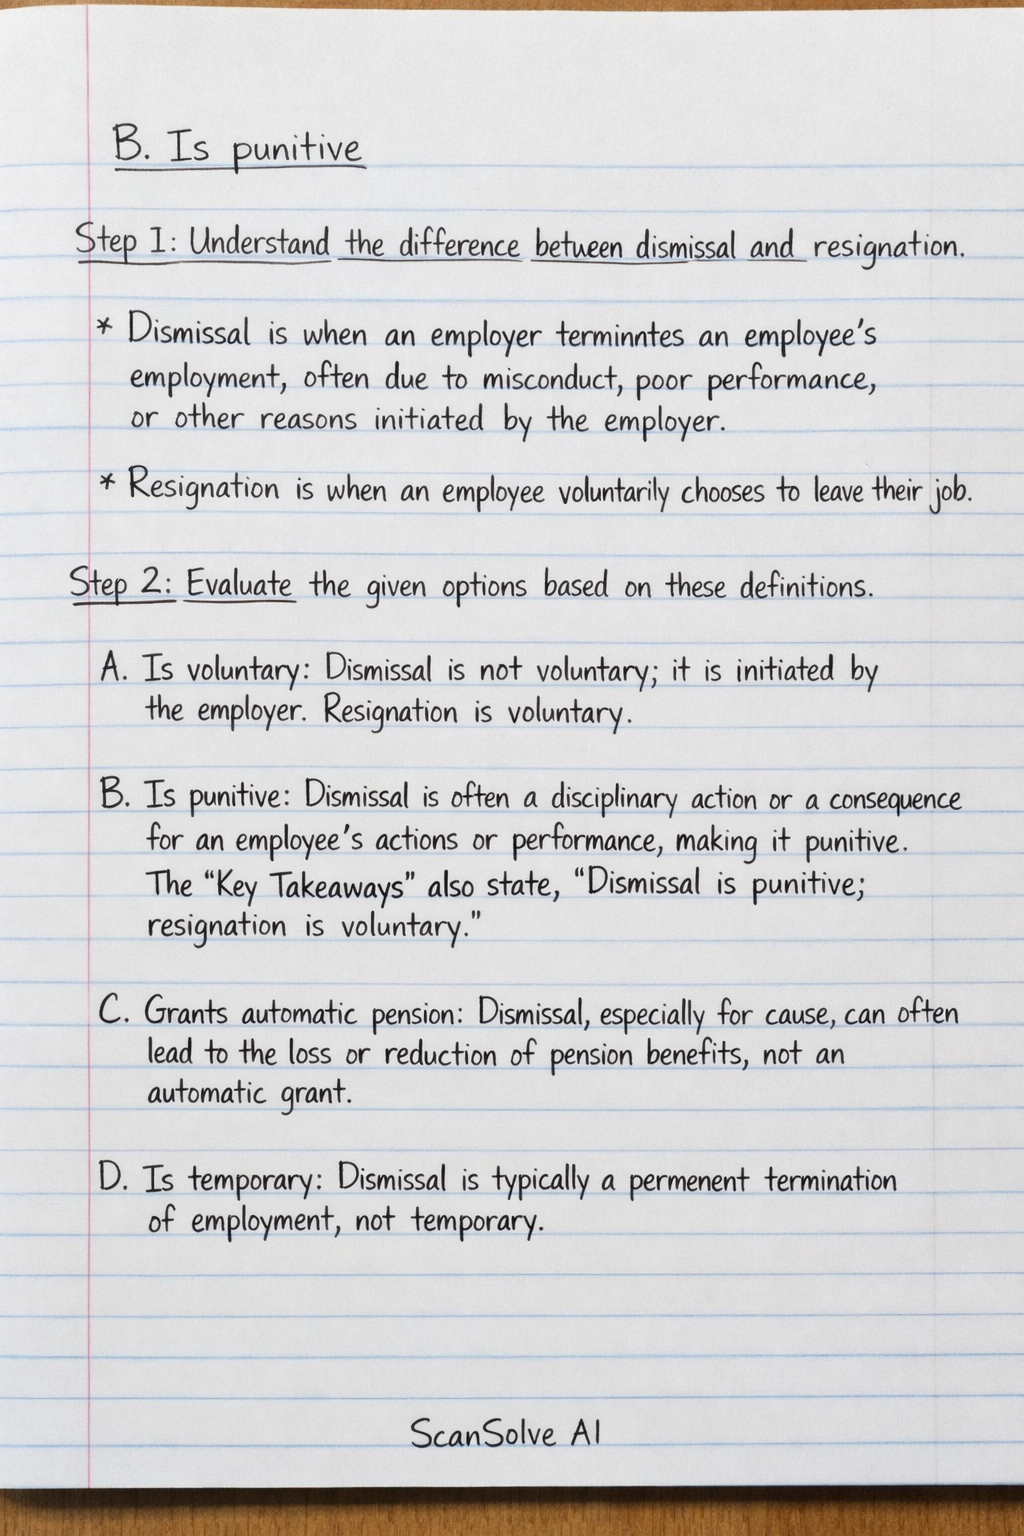 B. Is punitive
Step 1: Understand the difference between dismissal and resignation.
* Dismissal is when an employer terminntes an employee's
employment, often due to misconduct, poor performance,
or other reasons initiated by the employer.
* Resignation is when an employee voluntarily chooses to leave their job.
Step 2: Evaluate the given options based on these definitions.
A. Is voluntary: Dismissal is not voluntary; it is initiated by
the employer. Resignation is voluntary.
B. Is punitive: Dismissal is often a disciplinary action or a consequence
for an employee's actions or performance, making it punitive.
The "Key Takeaways" also state, "Dismissal is punitive;
resignation is voluntary."
C. Grants automatic pension: Dismissal, especially for cause, can often
lead to the loss or reduction of pension benefits, not an
automatic grant.
D. Is temporary: Dismissal is typically a permenent termination
of employment, not temporary.
ScanSolve AI